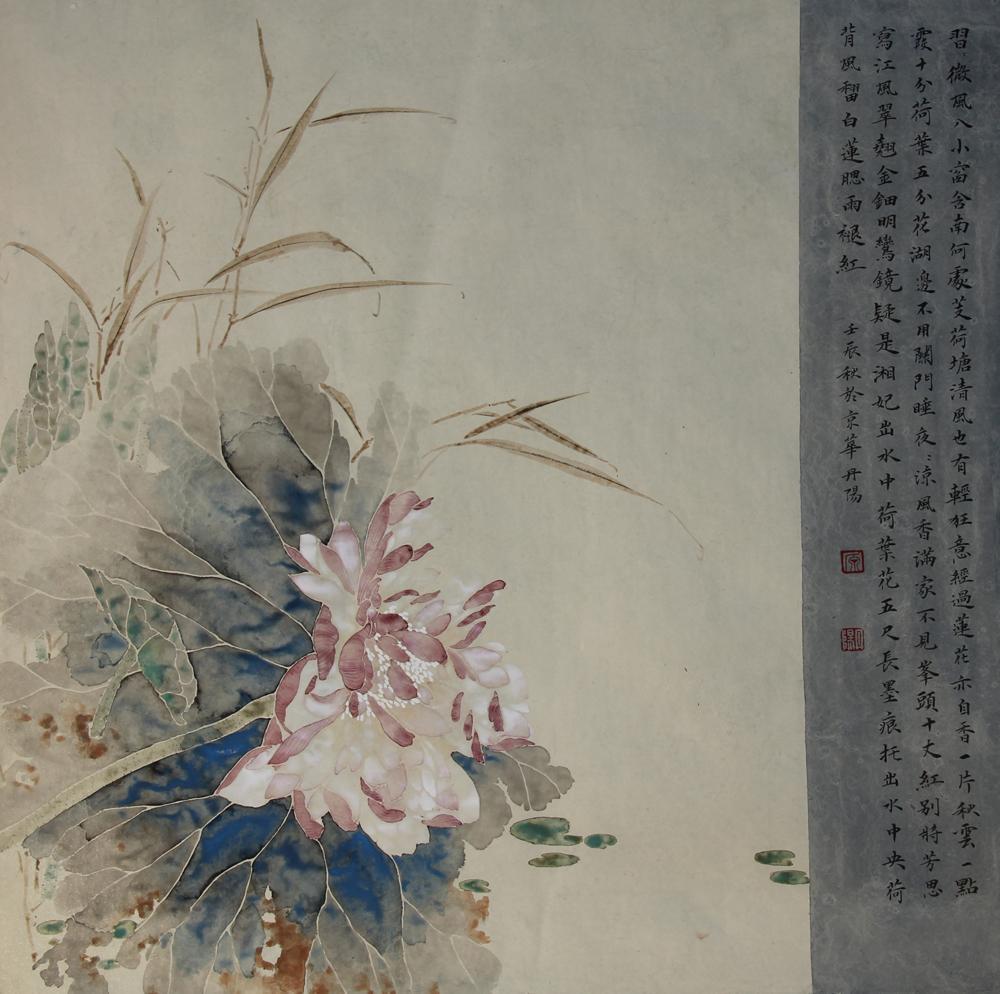 習〻微風八小窗含南何處芰荷塘清風也有輕狂意經過蓮花亦自香一片秋雲一點
霞十分荷葉五分花湖邊不用關門睡夜〻涼風香滿家不見峯頭十丈紅別時芳思
寫江風翠翹金鈿明鸞鏡疑是湘妃出水中荷葉花五尺長墨痕托出水中央荷
背風翻白蓮腮雨褪紅
壬辰秋於京華丹陽